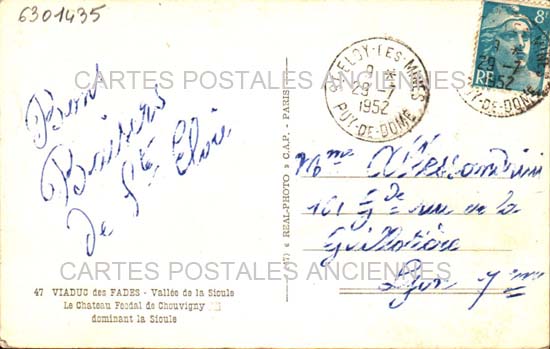 6301435
ST-ELOY-LES-MINES
9 H
29-7
1952
PUY-DE-DOME
8F
RF
9 H
29-7
1952
PUY-DE-DOME
CARTES POSTALES ANCIENNES
Bons
Baisers
de St Eloi
Mme
101 Gde rue de la
Guillotière
Lyon 7eme
« REAL-PHOTO » C.A.P. - PARIS
CARTES POSTALES ANCIENNES
47 VIADUC des FADES - Vallée de la Sioule
Le Chateau Feodal de Chouvigny
dominant la Sioule